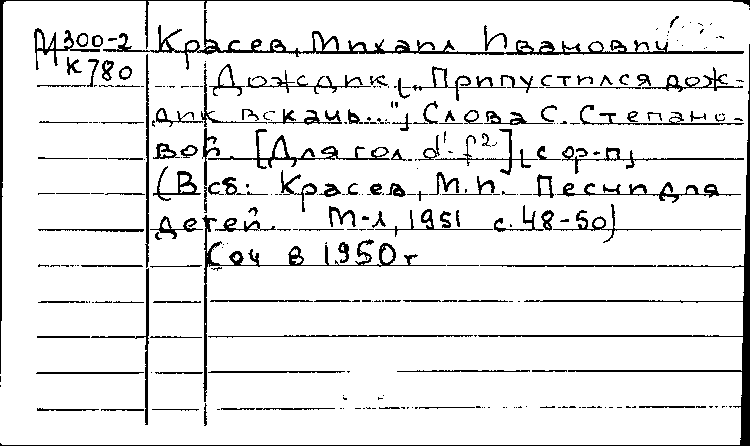 М 300-2 Красев, Михаил Иванович
К 780
Дождик [„Припустился дож-
дик вскачь..."] Слова С. Степано-
вой. [Для гол d'-f²] [с ор-п]
(В сб: Красев, М.И. Песни для
детей. М-Л, 1951 с. 48-50)
Соч в 1950 г